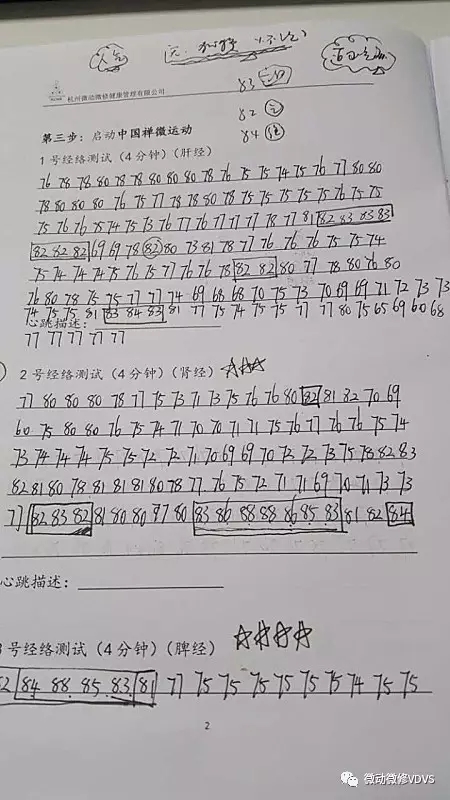 83
82
84
杭州微动微修健康管理有限公司
第三步：启动中国禅微运动
1号经络测试（4分钟）（肝经）
76 78 78 80 78 78 80 80 80 78 76 75 75 74 75 76 77 80 80
78 80 80 80 76 75 77 78 78 80 78 75 75 75 75 75 76 75 75
75 76 76 75 74 75 73 76 77 76 77 77 77 78 77 81 82 83 83 83
82 82 82 69 69 78 82 80 73 81 78 77 76 76 76 75 75 74
75 74 74 74 75 76 75 77 76 76 78 82 82 80 77 78 80 76 80
76 80 78 75 75 77 77 74 69 68 68 70 75 73 70 69 69 71 72 73 73
74 75 75 81 83 84 83 81 77 75 74 75 75 77 77 80 75 65 69 60 68
心跳描述：
77 77 77 77 77
2号经络测试（4分钟）（肾经）☆☆☆
77 80 80 80 78 77 75 73 71 73 75 76 76 80 82 81 82 70 69
60 75 80 80 76 75 74 71 70 70 71 71 75 76 77 76 76 75 74
73 74 74 74 75 75 72 72 71 70 69 69 70 72 72 73 75 78 82 83
82 81 80 78 81 81 81 80 78 77 76 75 72 71 71 69 70 71 73 73
77 82 83 82 81 80 80 87 80 83 86 88 88 86 85 83 81 82 84
心跳描述：
号经络测试（4分钟）（脾经）☆☆☆☆
82 84 88 85 83 81 77 75 75 75 75 75 75 74 75 75
2
微动微修VDVS